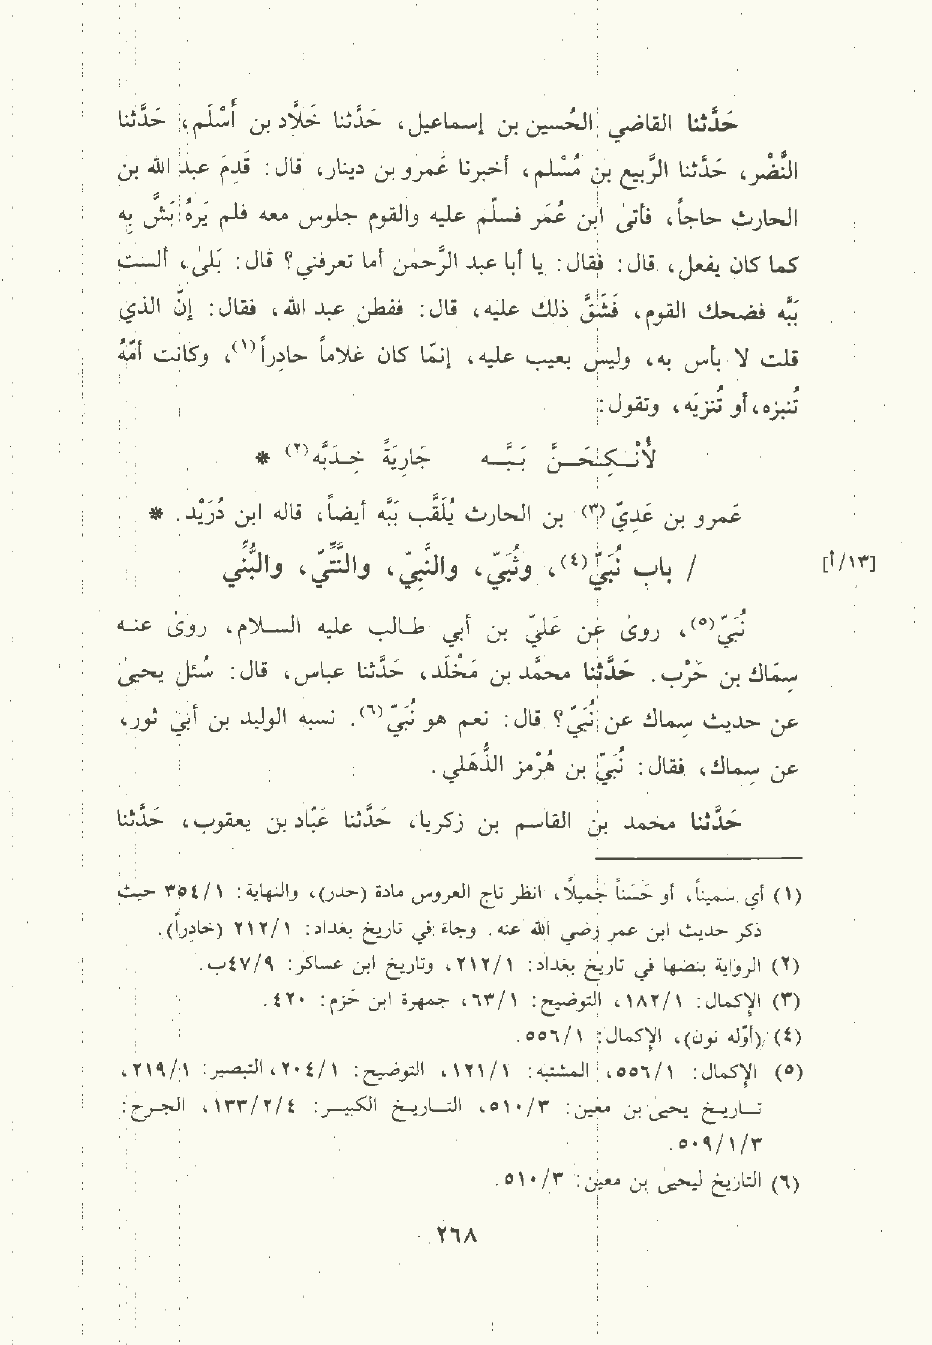 حَدَّثنا القاضي الحُسين بن إسماعيل، حَدَّثنا خَلاَّد بن أَسْلَم، حَدَّثنا
النَّضْر، حَدَّثنا الرَّبيع بن مُسْلم، أخبرنا عَمرو بن دينار، قال: قَدِمَ عبد الله بن
الحارث حاجاً، فأتىٰ ابن عُمَر فسلّم عليه والقوم جلوس معه فلم يَرهُ بَشَّ بِه
كما كان يفعل، قال: فقال: يا أبا عبد الرَّحمن أما تعرفني؟ قال: بَلىٰ، ألست
بَبَّه فضحك القوم، فَشَقَّ ذلك عليه، قال: ففطن عبد الله، فقال: إنَّ الذي
قلت لا بأس به، وليس بعيب عليه، إنّما كان غلاماً حادِراً(١)، وكانت أمّهُ
تُنبزه، أو تُنزيَه، وتقول:
لأُنْــكِــحَــنَّ بَــبَّــه جَارِيَةَ خِــدَبَّه(٢) *
عَمرو بن عَدِيّ(٣) بن الحارث يُلَقَّب بَبَّه أيضاً، قاله ابن دُرَيْد. *
[١٣/أ] / باب نُبَيّ(٤)، وثُبَيّ، والنَّبِيّ، والتَّتِّيّ، والبُّنِّي
نُبَيّ(٥)، روىٰ عن عَليّ بن أبي طالب عليه السلام، روىٰ عنه
سِمَاك بن حَرْب. حَدَّثنا محمَّد بن مَخْلَد، حَدَّثنا عباس، قال: سُئل يحيىٰ
عن حديث سِماك عن نُبَيّ؟ قال: نعم هو نُبَيّ(٦). نسبه الوليد بن أبي ثور،
عن سِماك، فقال: نُبَيّ بن هُرْمز الذُّهَلي.
حَدَّثنا محمد بن القاسم بن زكريا، حَدَّثنا عَبّاد بن يعقوب، حَدَّثنا
(١) أي سميناً، أو حَسَناً جميلاً، انظر تاج العروس مادة (حدر)، والنهاية: ١/٣٥٤ حيث
ذكر حديث ابن عمر رضي الله عنه. وجاء في تاريخ بغداد: ١/٢١٢ (خادِراً).
(٢) الرواية بنصها في تاريخ بغداد: ١/٢١٢، وتاريخ ابن عساكر: ٩/٤٧ب.
(٣) الإكمال: ١/١٨٢، التوضيح: ١/٦٣، جمهرة ابن حزم: ٤٢٠.
(٤) (أوّله نون)، الإكمال: ١/٥٥٦.
(٥) الإكمال: ١/٥٥٦، المشتبه: ١/١٢١، التوضيح: ١/٢٠٤، التبصير: ١/٢١٩،
تــاريخ يحيىٰ بن معين: ٣/٥١٠، التــاريــخ الكبيــر: ٤/٢/١٣٣، الجــرح:
٣/١/٥٠٩.
(٦) التاريخ ليحيىٰ بن معين: ٣/٥١٠.
٢٦٨